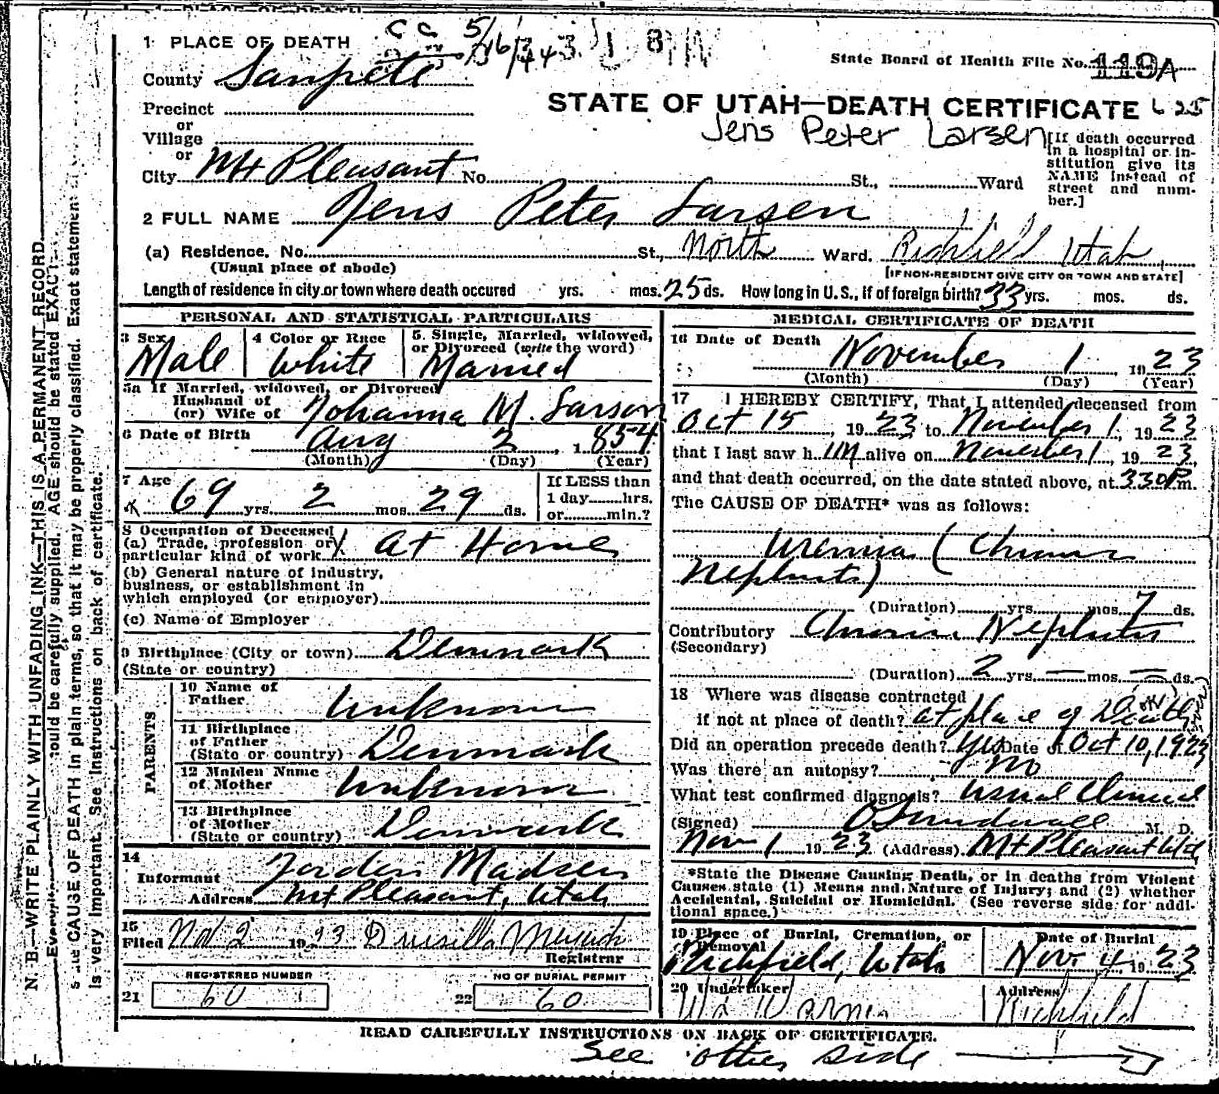 1 PLACE OF DEATH
County Sanpete
State Board of Health File No. 119A
Precinct
STATE OF UTAH—DEATH CERTIFICATE 625
or
Village
Jens Peter Larsen
or
City Mt Pleasant No. St., Ward
[If death occurred in a hospital or institution give its NAME instead of street and number.]
2 FULL NAME Jens Peter Larsen
(a) Residence, No. St., North Ward. Richfield Utah
(Usual place of abode)
[IF NON-RESIDENT GIVE CITY OR TOWN AND STATE]
Length of residence in city or town where death occured yrs. mos. 25 ds. How long in U. S., if of foreign birth? 33 yrs. mos. ds.
PERSONAL AND STATISTICAL PARTICULARS
3 Sex Male
4 Color or Race White
5. Single, Married, widowed, or Divorced (write the word) Married
5a If Married, widowed, or Divorced
Husband of
(or) Wife of Johanna M. Larson
6 Date of Birth Aug 2, 1854
(Month) (Day) (Year)
7 Age 69 yrs. 2 mos. 29 ds.
If LESS than
1 day hrs.
or min.?
8 Occupation of Deceased
(a) Trade, profession or
particular kind of work At Home
(b) General nature of industry,
business, or establishment in
which employed (or employer)
(c) Name of Employer
9 Birthplace (City or town) Denmark
(State or country)
PARENTS
10 Name of
Father Unknown
11 Birthplace
of Father
(State or country) Denmark
12 Maiden Name
of Mother Unknown
13 Birthplace
of Mother
(State or country) Denmark
14
Informant Madsen
Address Mt Pleasant, Utah
15
Filed Nov 2 1923 Drusilla
Registrar
REGISTERED NUMBER
21 60
NO OF BURIAL PERMIT
22 60
MEDICAL CERTIFICATE OF DEATH
16 Date of Death November 1 1923
(Month) (Day) (Year)
17 I HEREBY CERTIFY, That I attended deceased from
Oct 15, 1923 to November 1, 1923
that I last saw him alive on November 1, 1923
and that death occurred, on the date stated above, at 330 P.m.
The CAUSE OF DEATH* was as follows:
Uremia (Chronic
Nephritis)
(Duration) yrs. mos. 7 ds.
Contributory Chronic Nephritis
(Secondary)
(Duration) 2 yrs. — mos. — ds.
18 Where was disease contracted
if not at place of death? at place of Death
Did an operation precede death? Yes Date of Oct 10, 1923
Was there an autopsy? No
What test confirmed diagnosis? Usual Clinical
(Signed) O Sundwall M. D.
Nov 1 1923 (Address) Mt Pleasant Utd
*State the Disease Causing Death, or in deaths from Violent
Causes state (1) Means and Nature of Injury; and (2) whether
Accidental, Suicidal or Homicidal. (See reverse side for addi-
tional space.)
19 Place of Burial, Cremation, or
Removal
Richfield, Utah
Date of Burial
Nov. 4, 1923
20 Undertaker
Address
Richfield
READ CAREFULLY INSTRUCTIONS ON BACK OF CERTIFICATE.
See other side
N. B.—WRITE PLAINLY WITH UNFADING INK—THIS IS A PERMANENT RECORD
should be carefully supplied. AGE should be stated EXACT
CAUSE OF DEATH in plain terms, so that it may be properly classified. Exact statement
is very important. See instructions on back of certificate.